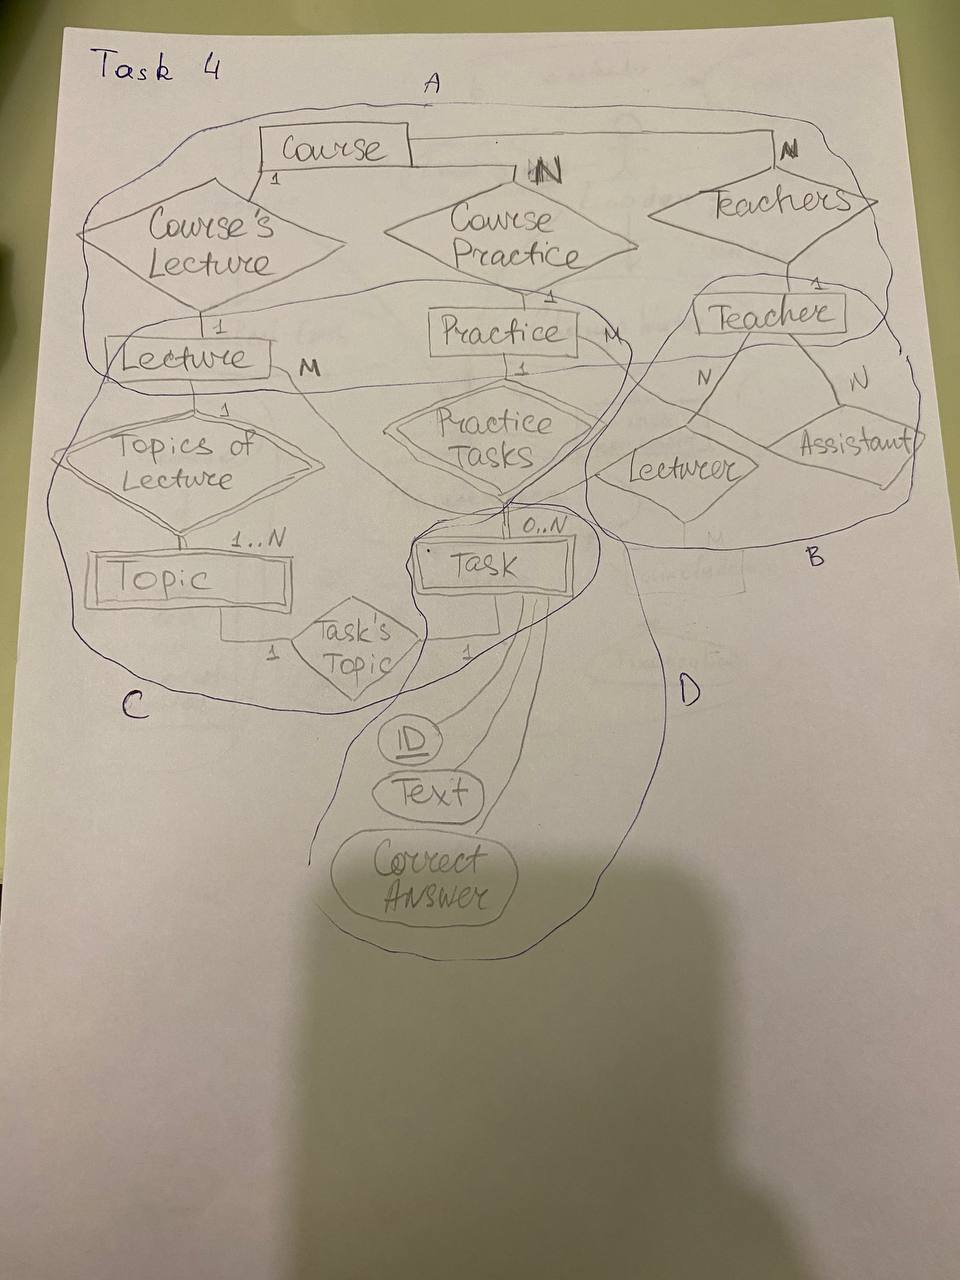 Task 4
A
Course
1
N
N
Course's
Lecture
Course
Practice
Teachers
1
1
1
Lecture
Practice
Teacher
M
M
1
1
N
N
Topics of
Lecture
Practice
Tasks
Lecturer
Assistant
1..N
0..N
B
Topic
Task
Task's
Topic
1
1
C
D
ID
Text
Correct
Answer